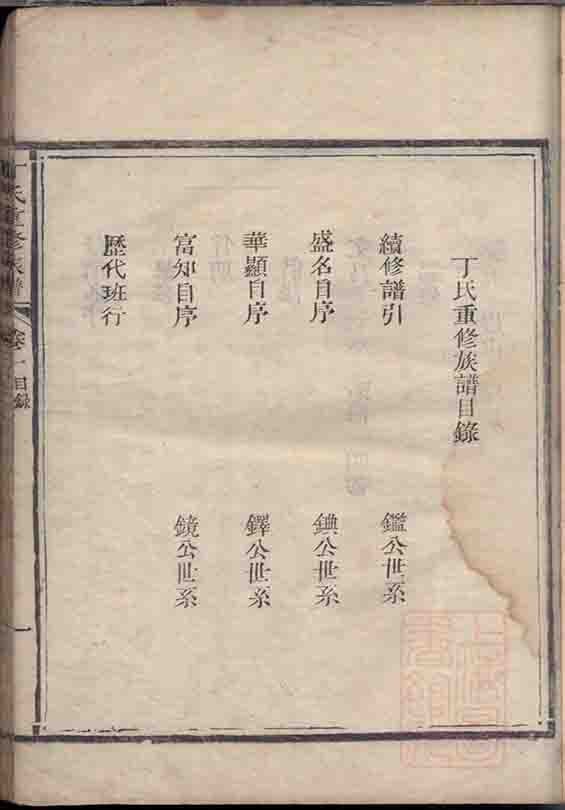 丁氏重修族譜目錄
續修譜引
鑑公世系
盛名自序
錪公世系
華顯自序
鐸公世系
富知自序
鏡公世系
歷代班行
丁氏重修族譜
卷一
目錄
一